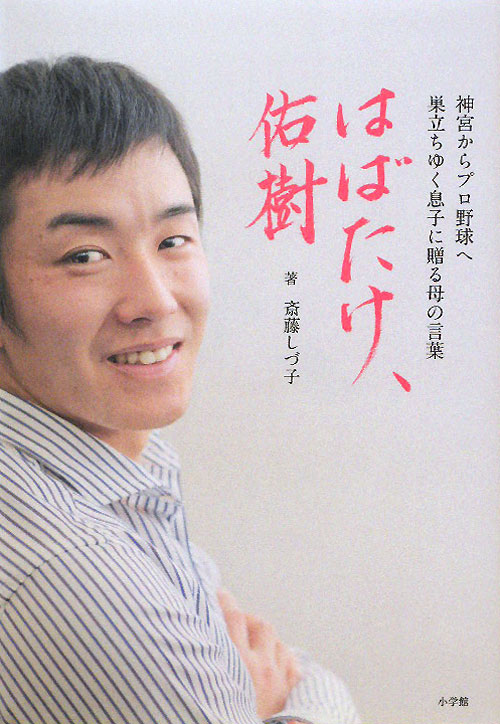 神宮からプロ野球へ
巣立ちゆく息子に贈る母の言葉
はばたけ、
佑樹
著 斎藤しづ子
小学館